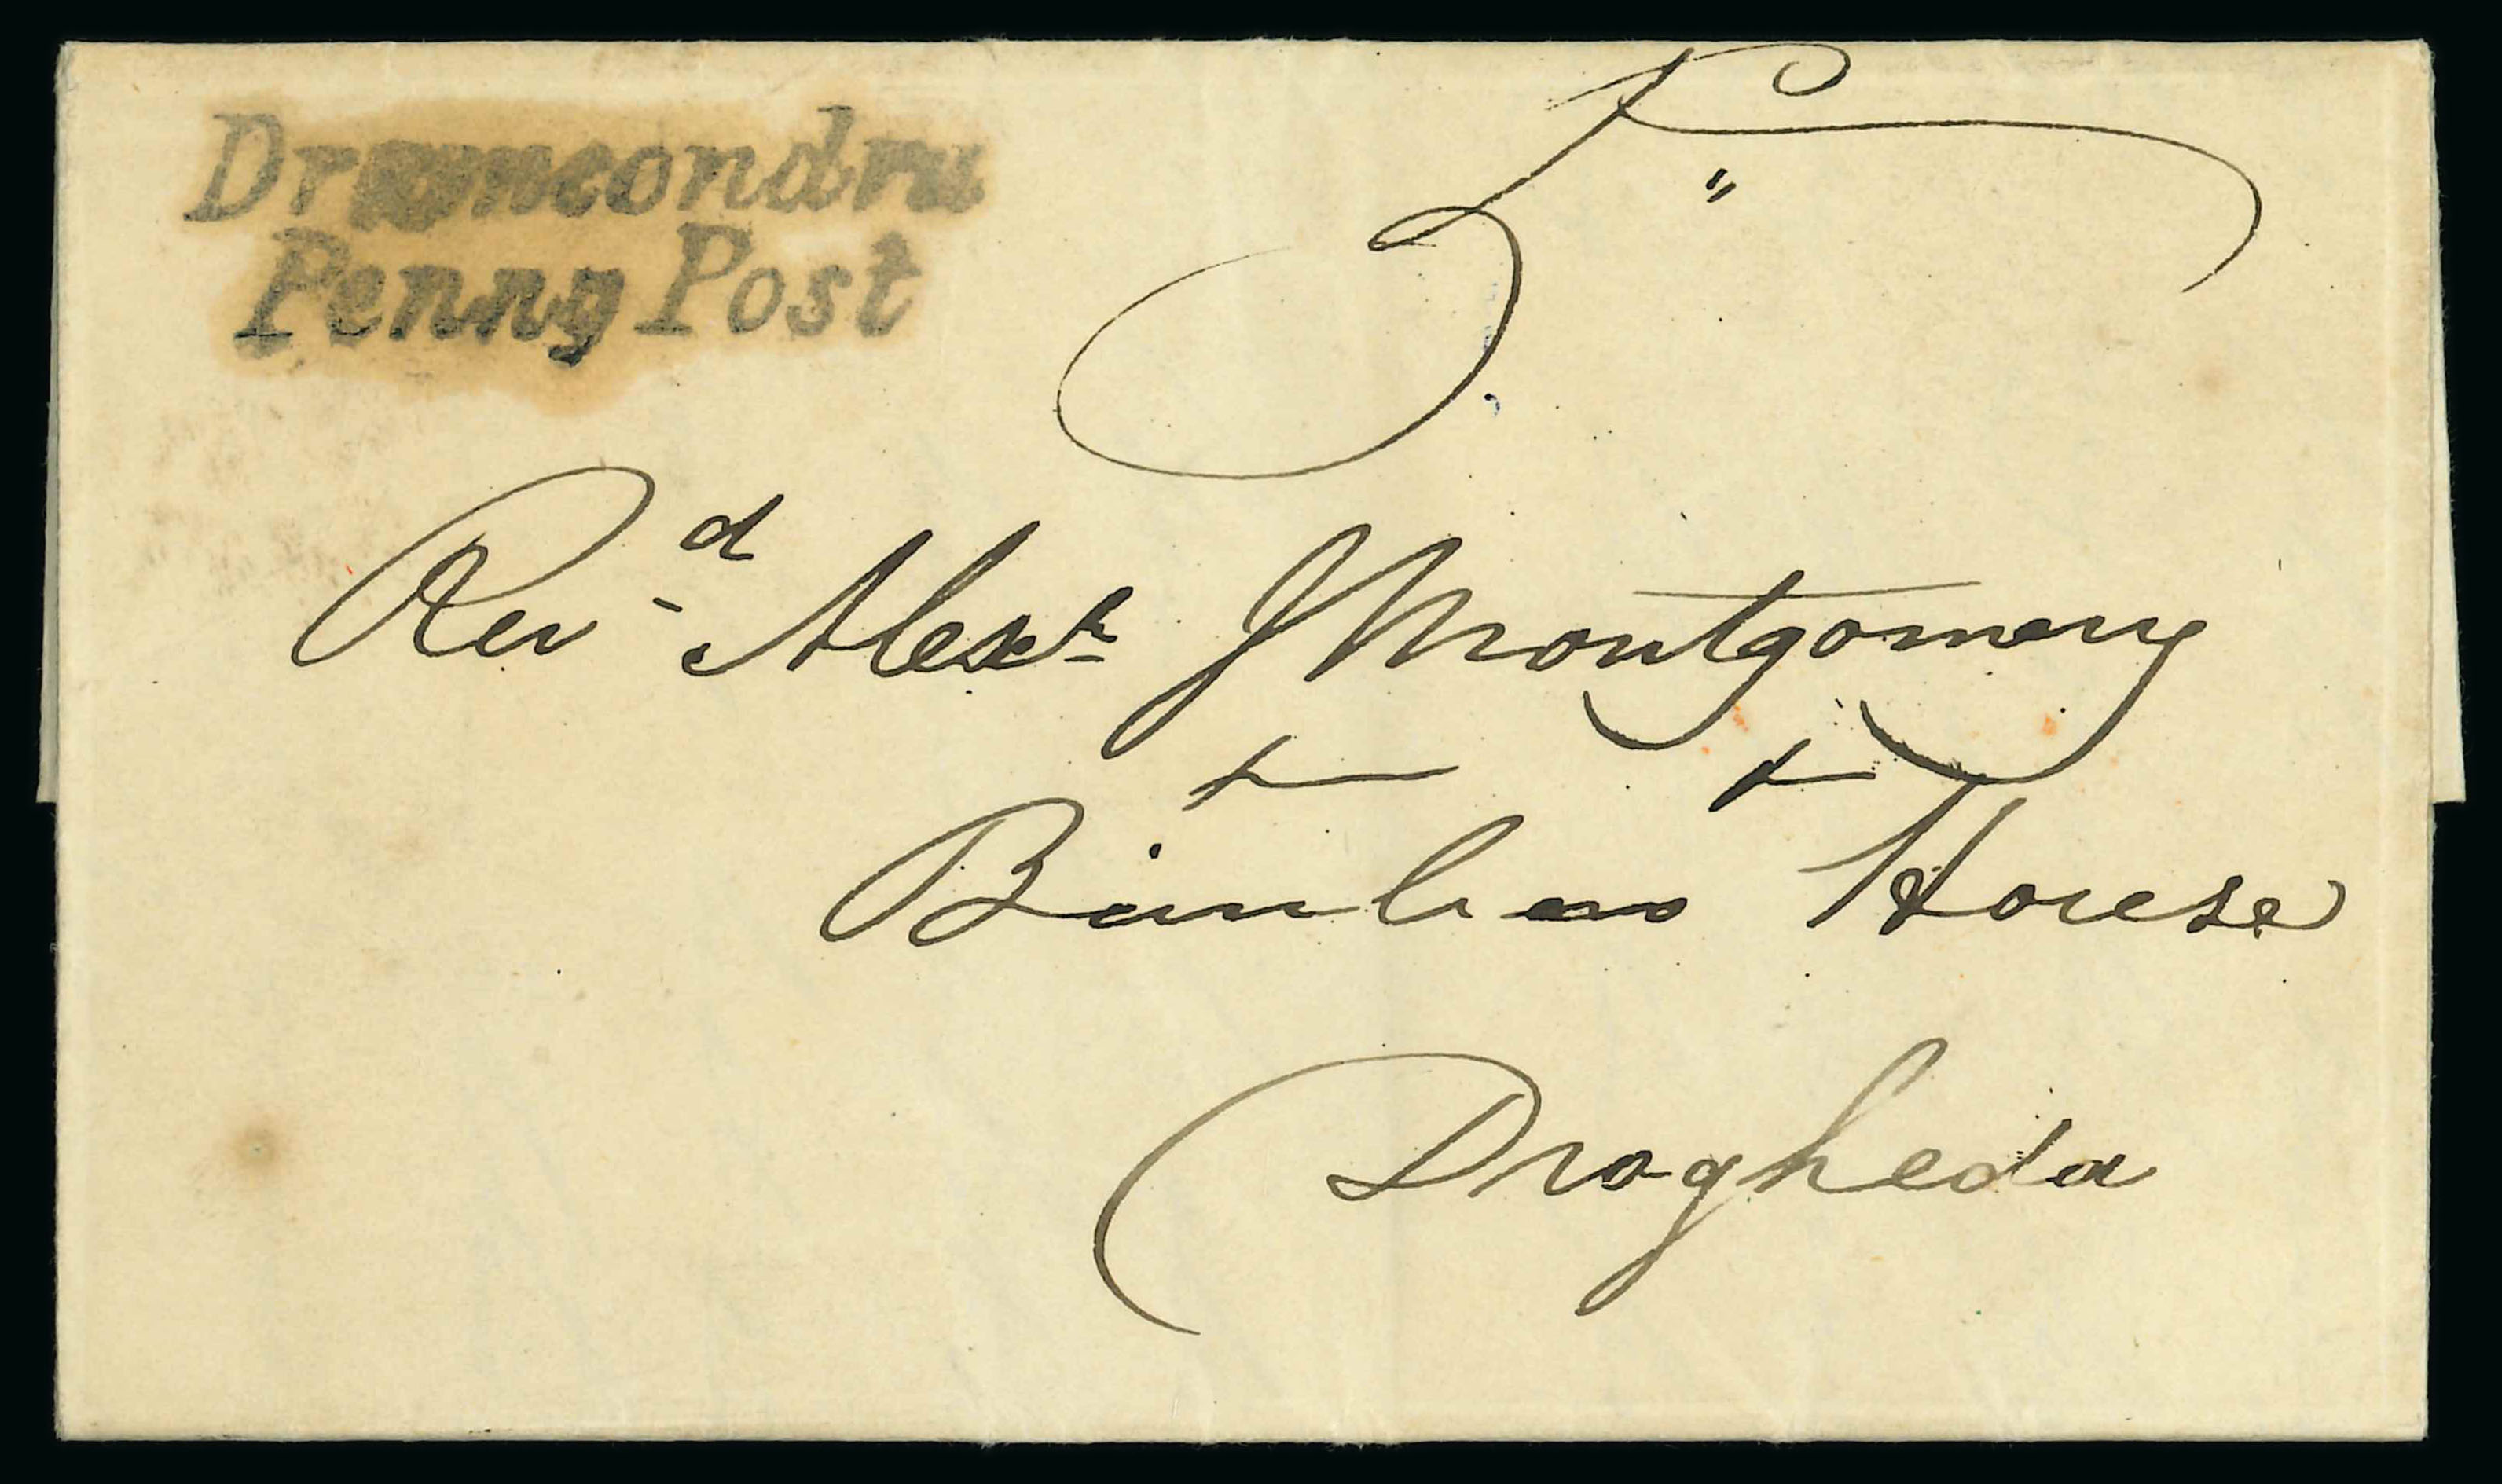 Drumcondra
Penny Post
5"
Revd Alexr Montgomery
House
Drogheda